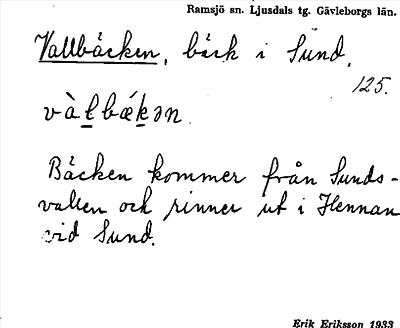 Ramsjö sn. Ljusdals tg. Gävleborgs län.
Vallbäcken, bäck i Sund,
125.
vàḻbǽḵən.
Bäcken kommer från Sunds-
vallen och rinner ut i Hennan
vid Sund.
Erik Eriksson 1933